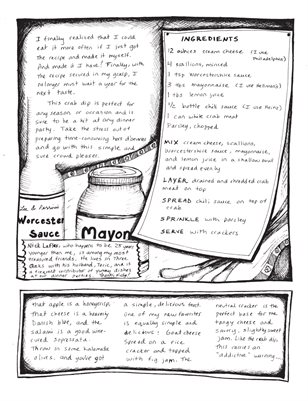 I finally realized that I could
eat it more often if I just got
the recipe and made it myself.
And made it I have! Finally, with
the recipe secured in my grasp, I
no longer must wait a year for the
next taste.
This crab dip is perfect for
any season, or occasion and is
sure to be a hit at any dinner
party. Take the stress out of
preparing time-consuming hors d'oeuvres
and go with this simple and
sure crowd pleaser.
Lea & Perrins
Worcester
Sauce
Mayon
Nick Lafler, who happens to be 28 years
younger than me, is among my most
treasured friends. He lives in Three
Oaks with his husband, Toric, and is
a frequent contributor of yummy dishes
at our dinner parties.
INGREDIENTS
12 ounces cream cheese (I use
Philadelphia)
4 scallions, minced
1 tsp Worcestershire sauce
3 tbs mayonnaise (I use Hellmann's)
1 tbs lemon juice
1/2 bottle chili sauce (I use Heinz)
1 can white crab meat
Parsley, chopped
MIX cream cheese, scallions,
worcestershire sauce, mayonnaise,
and lemon juice in a shallow bowl
and spread evenly
LAYER drained and shredded crab
meat on top
SPREAD chili sauce on top of
crab
SPRINKLE with parsley
SERVE with crackers
that apple is a honeycrisp.
That cheese is a heavenly
Danish blue, and the
salami is a good wine-
cured sopressata.
Throw in some kalamata
olives, and you've got
a simple, delicious feast.
One of my new favorites
is equally simple and
delicious: Goat cheese
spread on a rice
cracker and topped
with fig jam. The
neutral cracker is the
perfect base for the
tangy cheese and
saucy, slightly sweet
jam. Like the crab dip
this carries an
"addictive" warning.